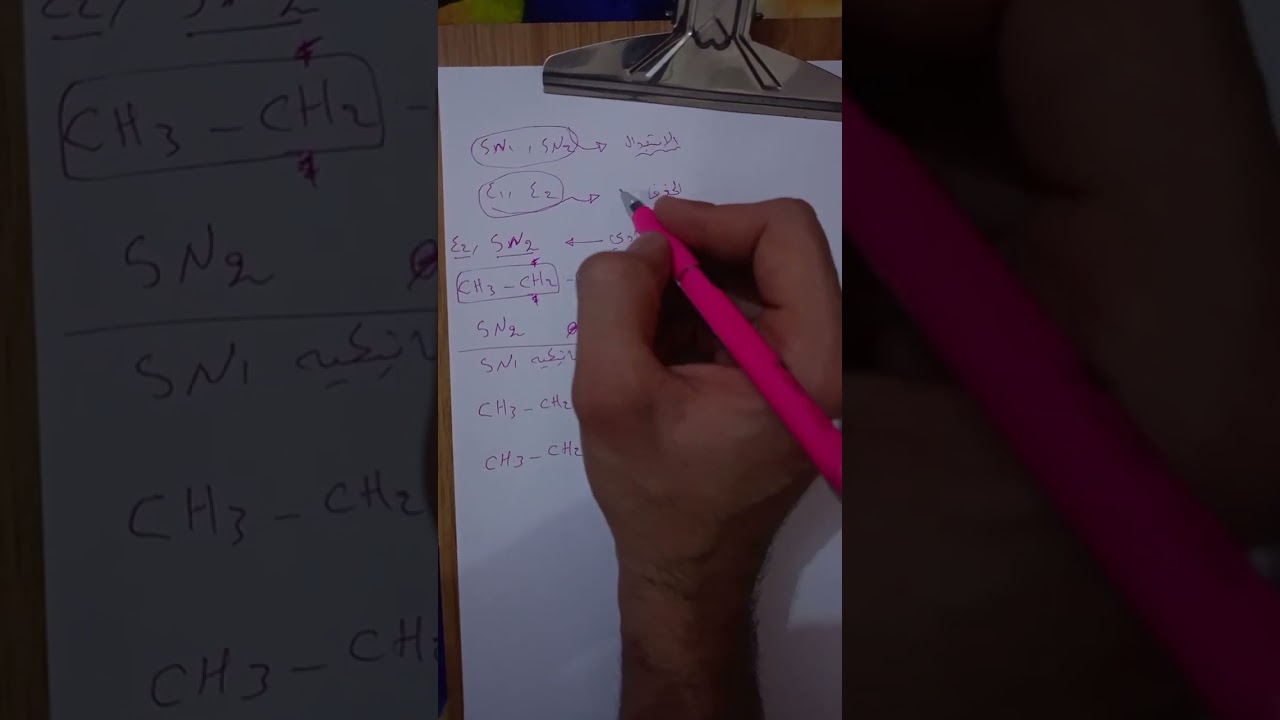 SN1 , SN2 → الاستبدال
E1, E2 →
E2, SN2 ←
CH3 - CH2 -
SN2
SN1
CH3 - CH2
CH3 - CH2